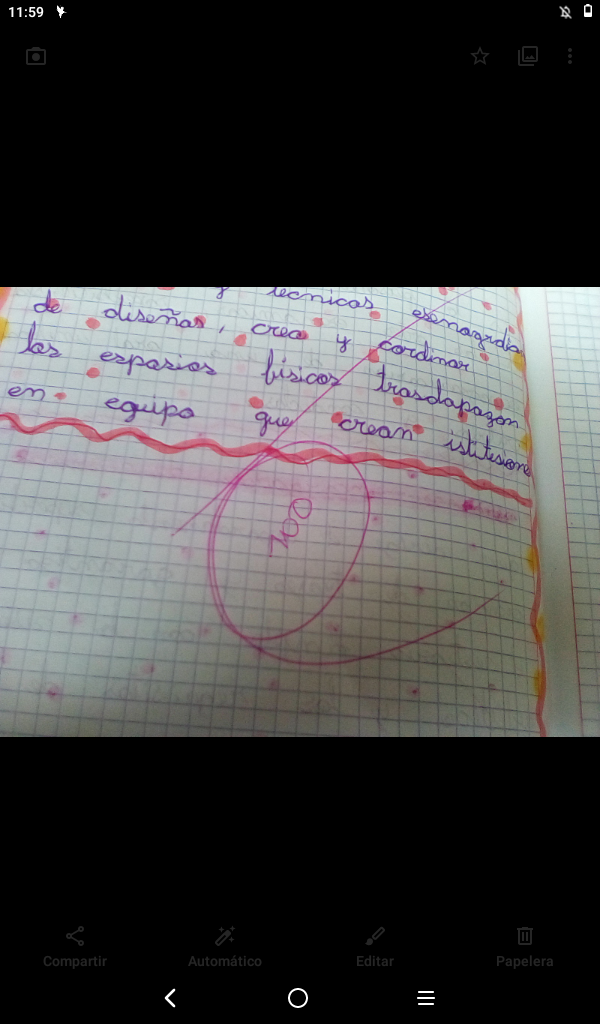 11:59
y tecnicas esenagrafia
de diseñar, crea y cordinar
los espasios fisicos trasdapazon
en equipo que crean istitesione
100
Compartir Automático Editar Papelera